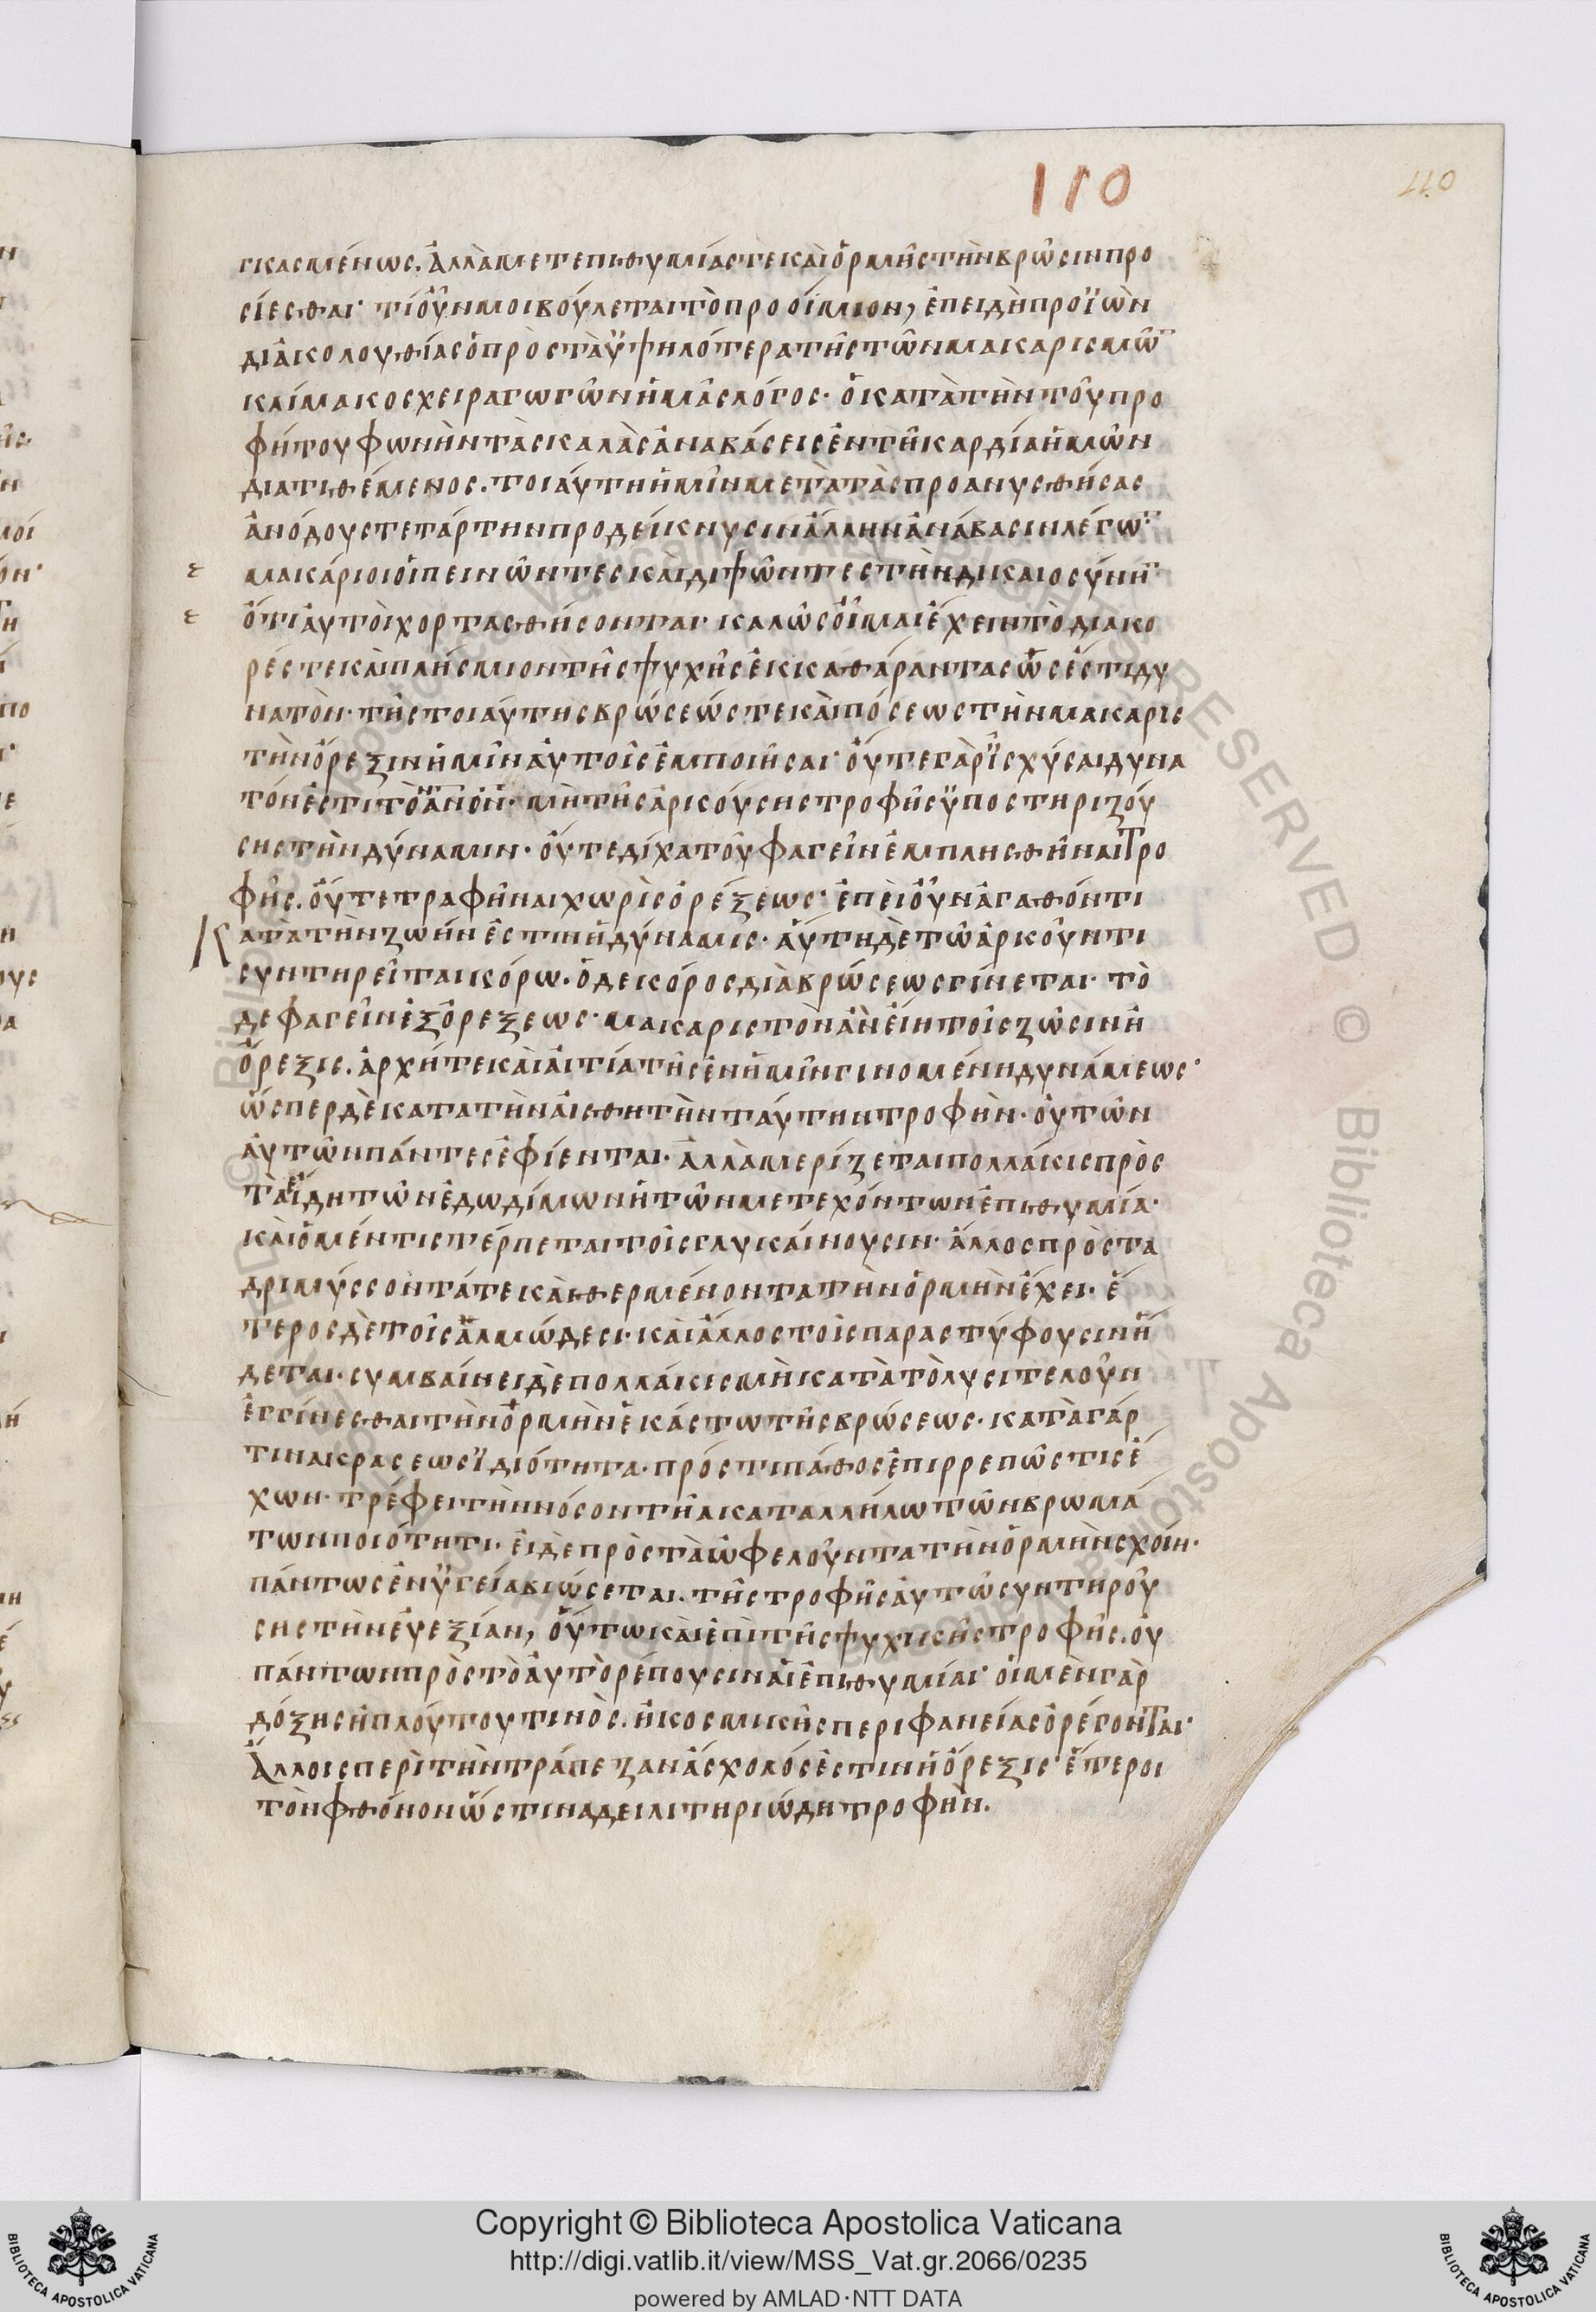 110
110
γκασμένως. ἀλλὰ μετ ἐπιθυμίας τὲ καὶ ὁρμῆς τὴν βρῶσιν προ
σίεσθαι· τί οὖν μοι βούλεται τὸ προοίμιον, ἐπειδὴ προϊὼν
δι ἀκολουθίας ὁ πρὸς τὰ ὑψηλότερα τῆς τῶν μακαρισμῶ
κλίμακος χειραγωγῶν ἡμᾶς λόγος· ὁ κατὰ τὴν τοῦ προ
φήτου φωνὴν τὰς καλὰς ἀναβάσεις ἐν τῆ καρδία ἡμῶν
διατιθέμενος. τοιαύτην ἡμῖν μετὰ τὰς προανυσθήσας
ἀνόδους τετάρτην προδείκνυσιν ἄλλην ἀνάβασιν λέγω
μακάριοι οἱ πεινῶντες καὶ διψῶντες τὴν δικαιοσύνη
ὅτι αὐτοὶ χορτασθήσονται· καλῶς οἶμαι ἔχειν τὸ διακο
ρές τε καὶ πλήσμιον τῆς ψυχῆς ἐκκαθάραντας ὡς ἐστὶ δυ
νατὸν· τῆς τοιαύτης βρώσεώς τε καὶ πόσεως τὴν μακαρισ
τὴν ὄρεξιν ἡμῖν αὐτοῖς ἐμποιῆσαι· οὔτε γὰρ ἰσχύσαι δυνα
τόν ἐστι τὸ ανον· μὴ τῆς ἀρκούσης τροφῆς ὑποστηριζού
σης τὴν δύναμιν· οὔτε δίχα τοῦ φαγεῖν ἐμπλησθῆναι τρο
φῆς. οὔτε τραφῆναι χωρὶς ὀρέξεως· ἐπεὶ οὖν ἀγαθόν τι
Κατὰ τὴν ζωήν ἐστιν ἡ δύναμις· αὕτη δὲ τῶ ἀρκοῦντι
συντηρεῖται κόρω. ὁ δε κόρος διὰ βρώσεως γίνεται· τὸ
δε φαγεῖν ἐξ ὀρέξεως· μακαριστὸν ἂν εἴη τοῖς ζῶσιν ἡ
ὄρεξις. ἀρχή τε καὶ αἰτία τῆς ἐν ἡμῖν γινομένη δυνάμεως·
ὥσπερ δὲ κατα τὴν αἰσθητὴν ταύτην τροφὴν· οὐ τῶν
αὐτῶν πάντες ἐφίενται· ἀλλὰ μερίζεται πολλάκις πρὸς
τὰ εἴδη τῶν ἐδωδίμων ἡ τῶν μετεχόντων ἐπιθυμία·
καὶ ὁ μέν τις τέρπεται τοῖς γλυκαίνουσιν· ἄλλος πρὸς τα
δριμύσσοντά τε καὶ θερμένοντα τὴν ὁρμὴν ἔχει· ἕ
τερος δὲ τοῖς ἁλμώδεσι· καὶ ἄλλος τοῖς παραστύφουσιν ἥ
δεται· συμβαίνει δὲ πολλάκις μὴ κατὰ τὸ λυσιτελοῦν
ἐγγίνεσθαι τὴν ὁρμὴν ἑκάστω τῆς βρώσεως· κατὰ γάρ
τινα κρασεως ἰδιότητα· πρός τι πάθος ἐπιρρεπῶς τις ἔ
χων· τρέφει τὴν νόσον τῆ ακαταλλήλω τῶν βρωμά
των ποιότητι· εἰ δὲ πρὸς τὰ ὠφελοῦντα τὴν ὁρμὴν σχοίη·
πάντως ἐν ὑγεία βιώσεται. τῆς τροφῆς αὐτῶ συντηρού
σης τὴν εὐεξίαν, οὕτω καὶ ἐπὶ τῆς ψυχικῆς τροφῆς. οὐ
πάντων πρὸς τὸ αὐτὸ ρέπουσιν αἱ ἐπιθυμίαι· οἱ μὲν γὰρ
δόξης ἢ πλούτου τινὸς. ἢ κοσμικῆς περιφανείας ὀρέγονται·
Ἄλλοις περὶ τὴν τράπεζαν ἄσχολός ἐστιν ἡ ὄρεξις· ἕτεροι
τὸν φθόνον ὥς τινα δειλιτηριώδη τροφὴν.